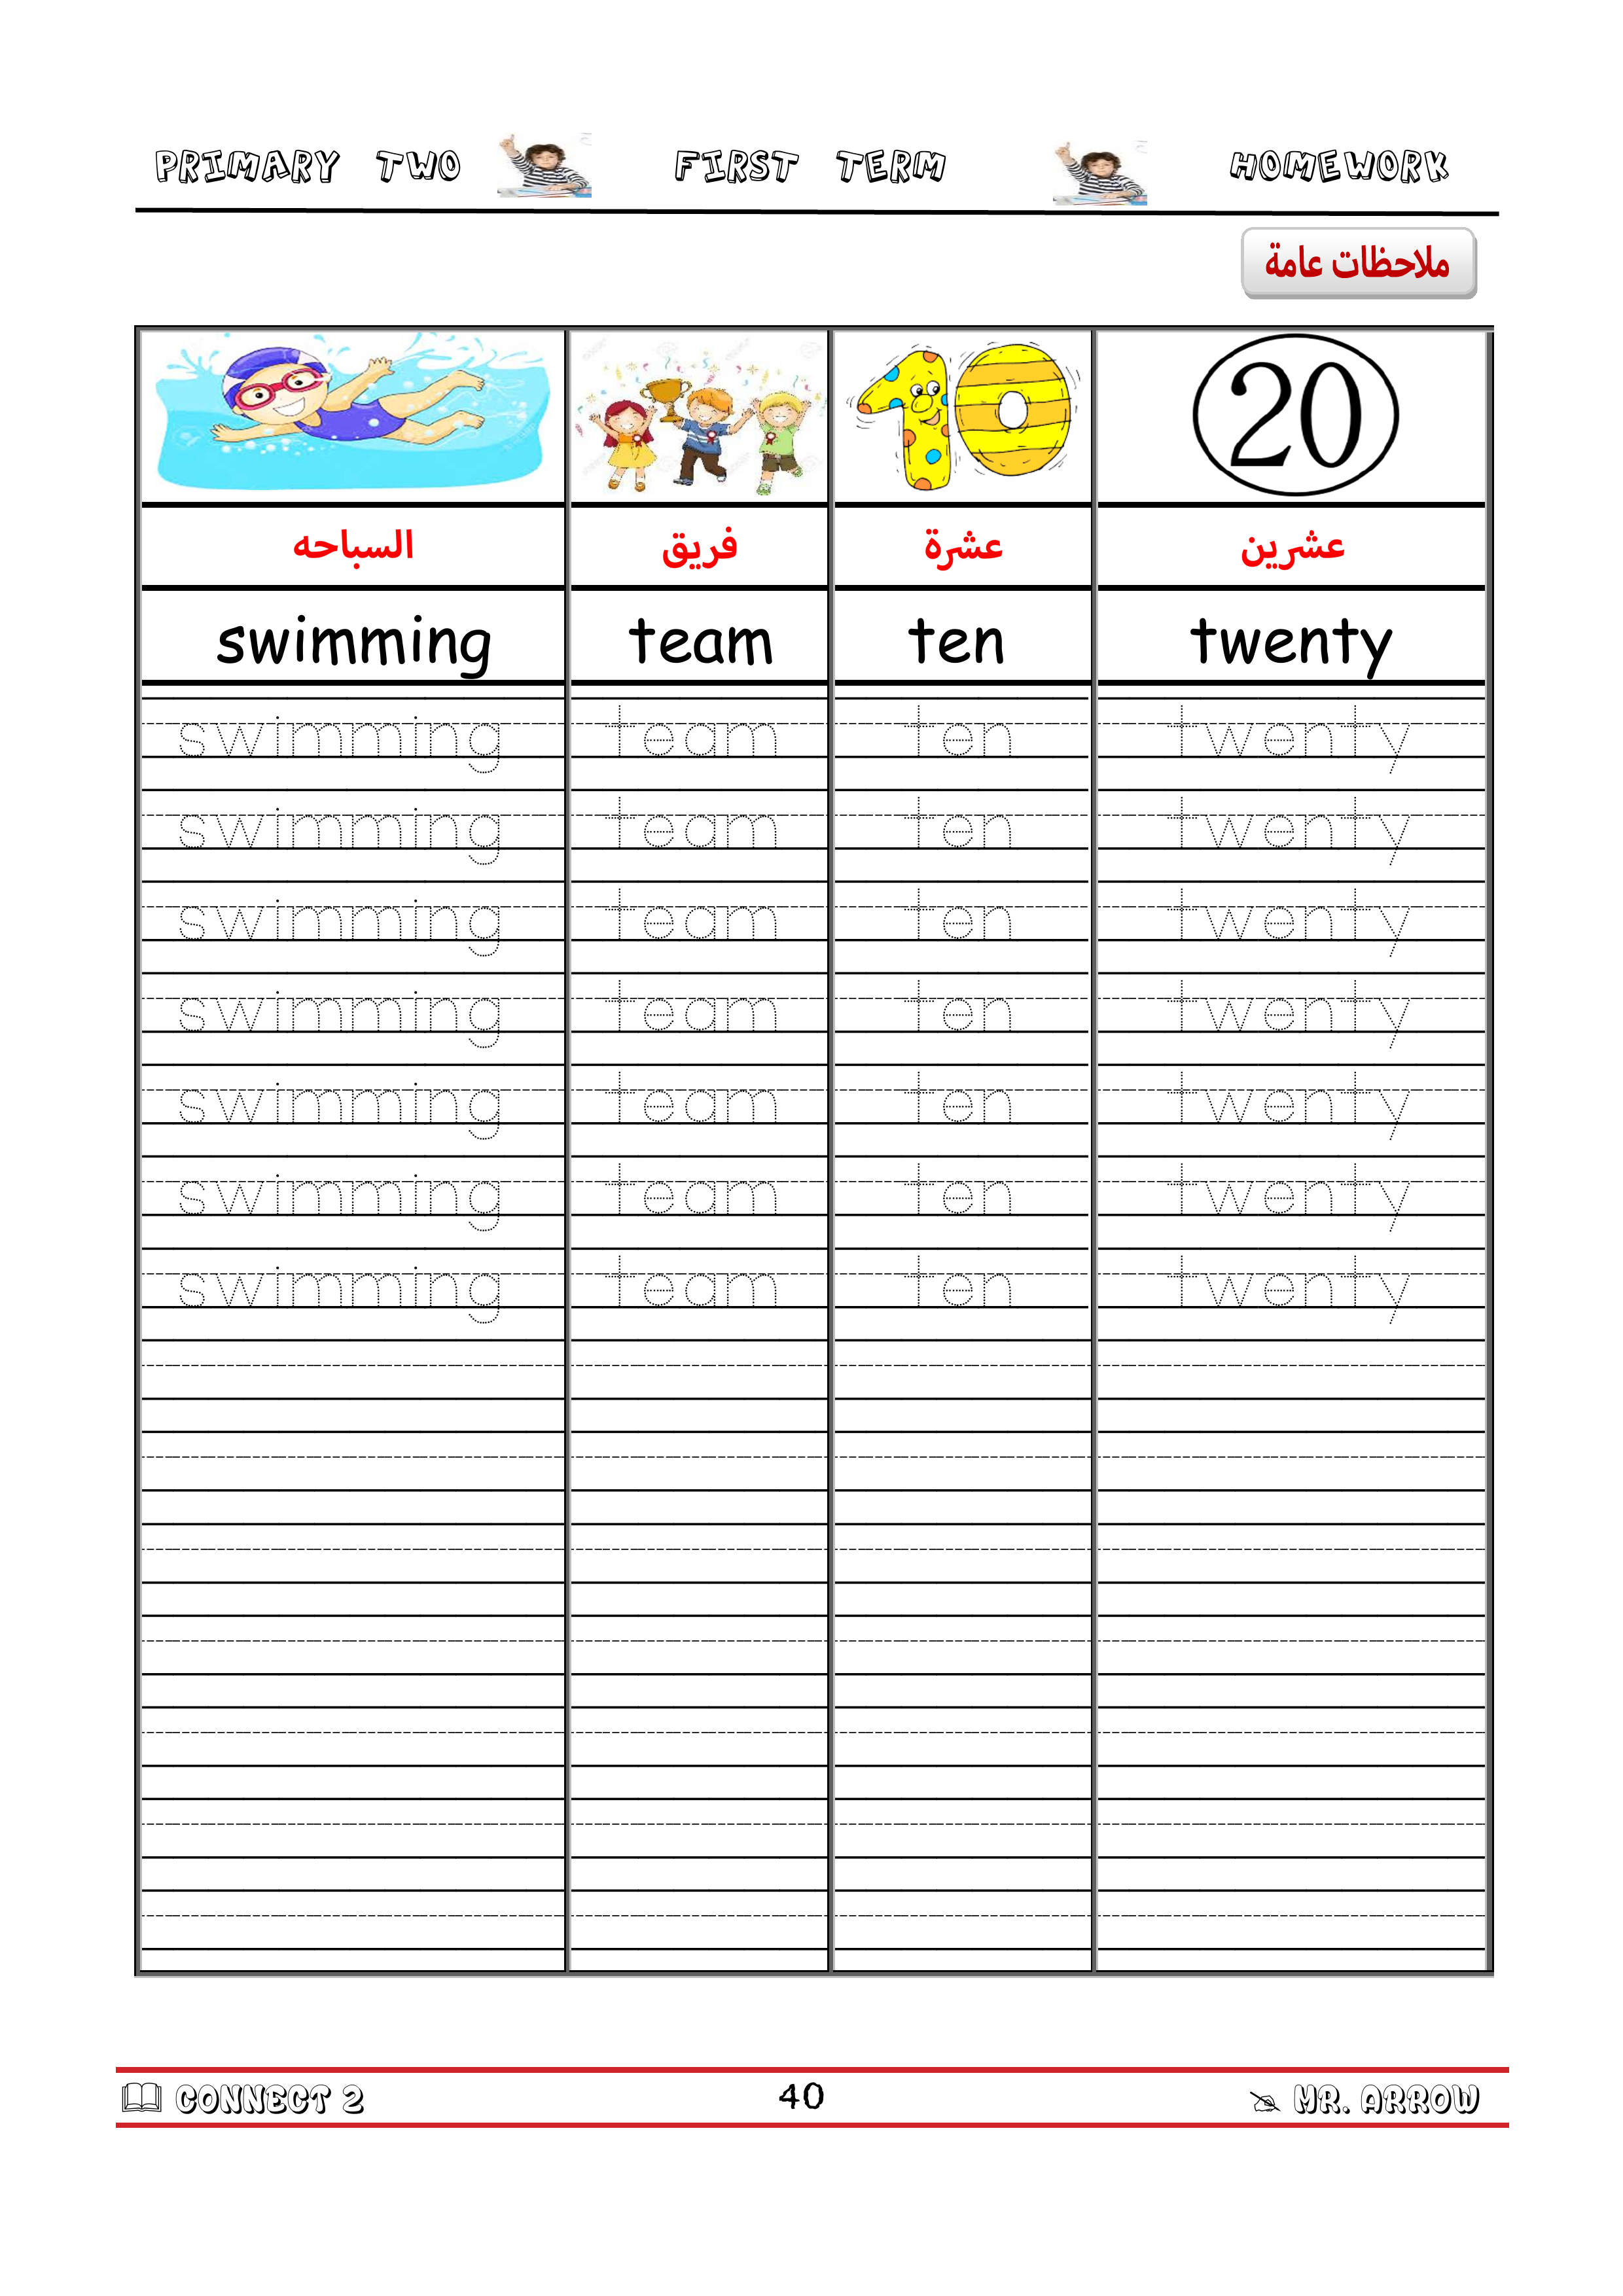 PRIMARY TWO FIRST TERM HOMEWORK
ملاحظات عامة
10 20
السباحه فريق عشرة عشرين
swimming team ten twenty
swimming team ten twenty
swimming team ten twenty
swimming team ten twenty
swimming team ten twenty
swimming team ten twenty
swimming team ten twenty
swimming team ten twenty
CONNECT 2 40 MR. ARROW